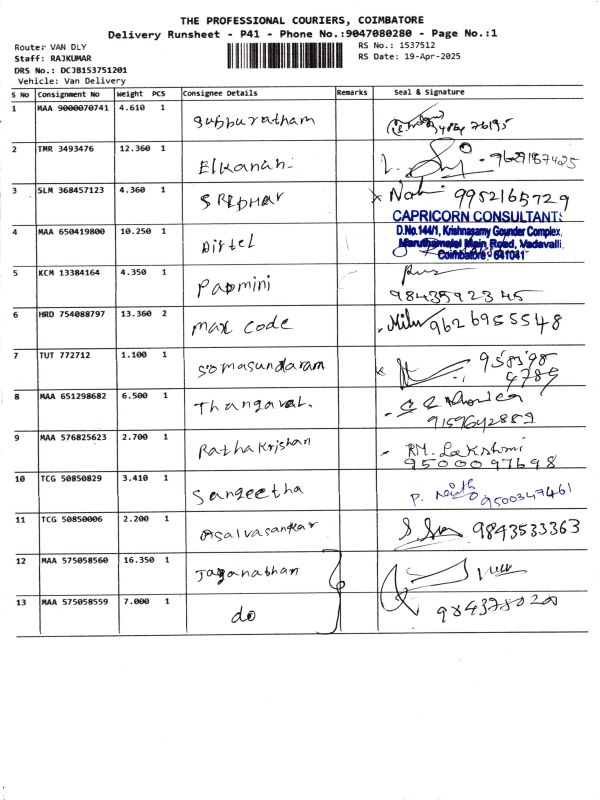 THE PROFESSIONAL COURIERS, COIMBATORE
Delivery Runsheet - P41 - Phone No.:9047080280 - Page No.:1
Route: VAN DLY
RS No.: 1537512
Staff: RAJKUMAR
RS Date: 19-Apr-2025
DRS No.: DCJB153751201
Vehicle: Van Delivery
S No Consignment No Weight PCS Consignee Details Remarks Seal & Signature
1 MAA 9000070741 4.610 1 Subburatham
2 TMR 3493476 12.360 1 Elkanah: - 9629187425
3 SLM 368457123 4.360 1 SRIDHAR 9952165729
CAPRICORN CONSULTANT
D.No.144/1, Krishnasamy Gounder Complex,
4 MAA 650419800 10.250 1 Airtel Maruthamalai Main Road, Vadavalli,
Coimbatore - 641041
5 KCM 13384164 4.350 1 Padmini
9843592345
6 HRD 754088797 13.360 2 Max Code 9626955548
7 TUT 772712 1.100 1 Somasundaram 958598
4789
8 MAA 651298682 6.500 1 Thangavel.
9159642889
9 MAA 576825623 2.700 1 Rathakrishan - RM. Lakshmi
9500097698
10 TCG 50850829 3.410 1 Sangeetha 9500347461
11 TCG 50850006 2.200 1 Asalvasankar 9843533363
12 MAA 575058560 16.350 1 Jaganatham
13 MAA 575058559 7.000 1 do